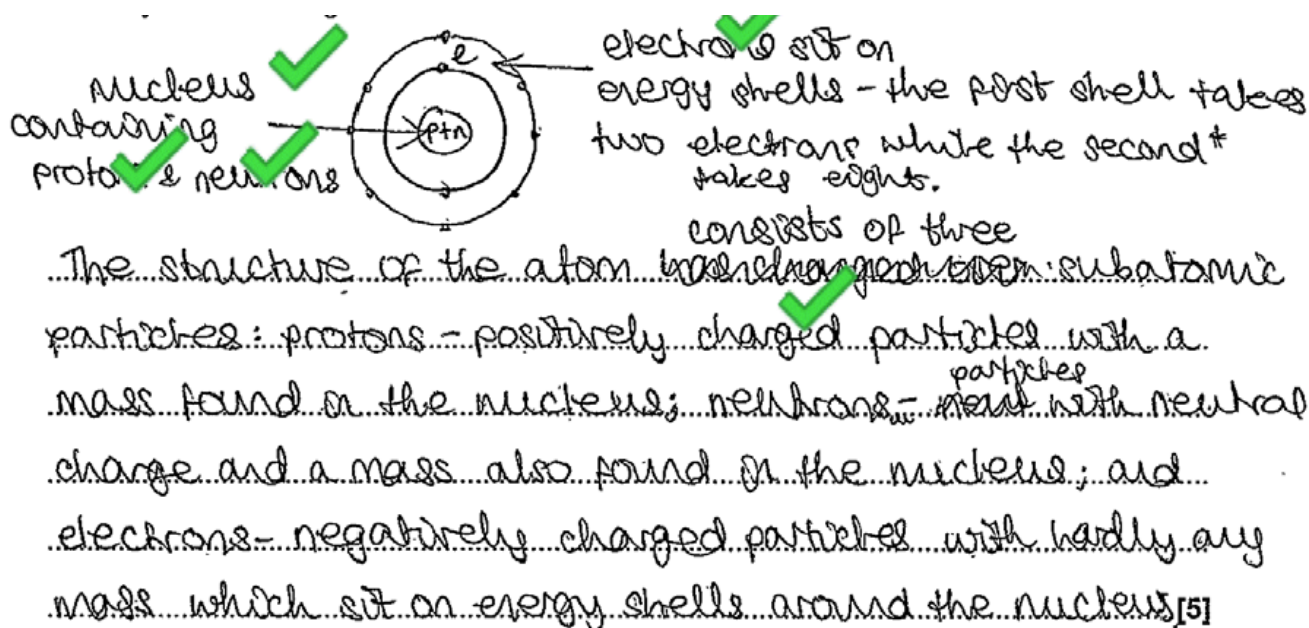 nucleus
containing
protons & neutrons
e
p+n
electrons sit on
energy shells - the first shell takes
two electrons while the second*
takes eight.
consists of three
The structure of the atom subatomic
particles: protons - positively charged particles with a
particles
mass found in the nucleus; neutrons - with neutral
charge and a mass also found in the nucleus; and
electrons - negatively charged particles with hardly any
mass which sit on energy shells around the nucleus [5]